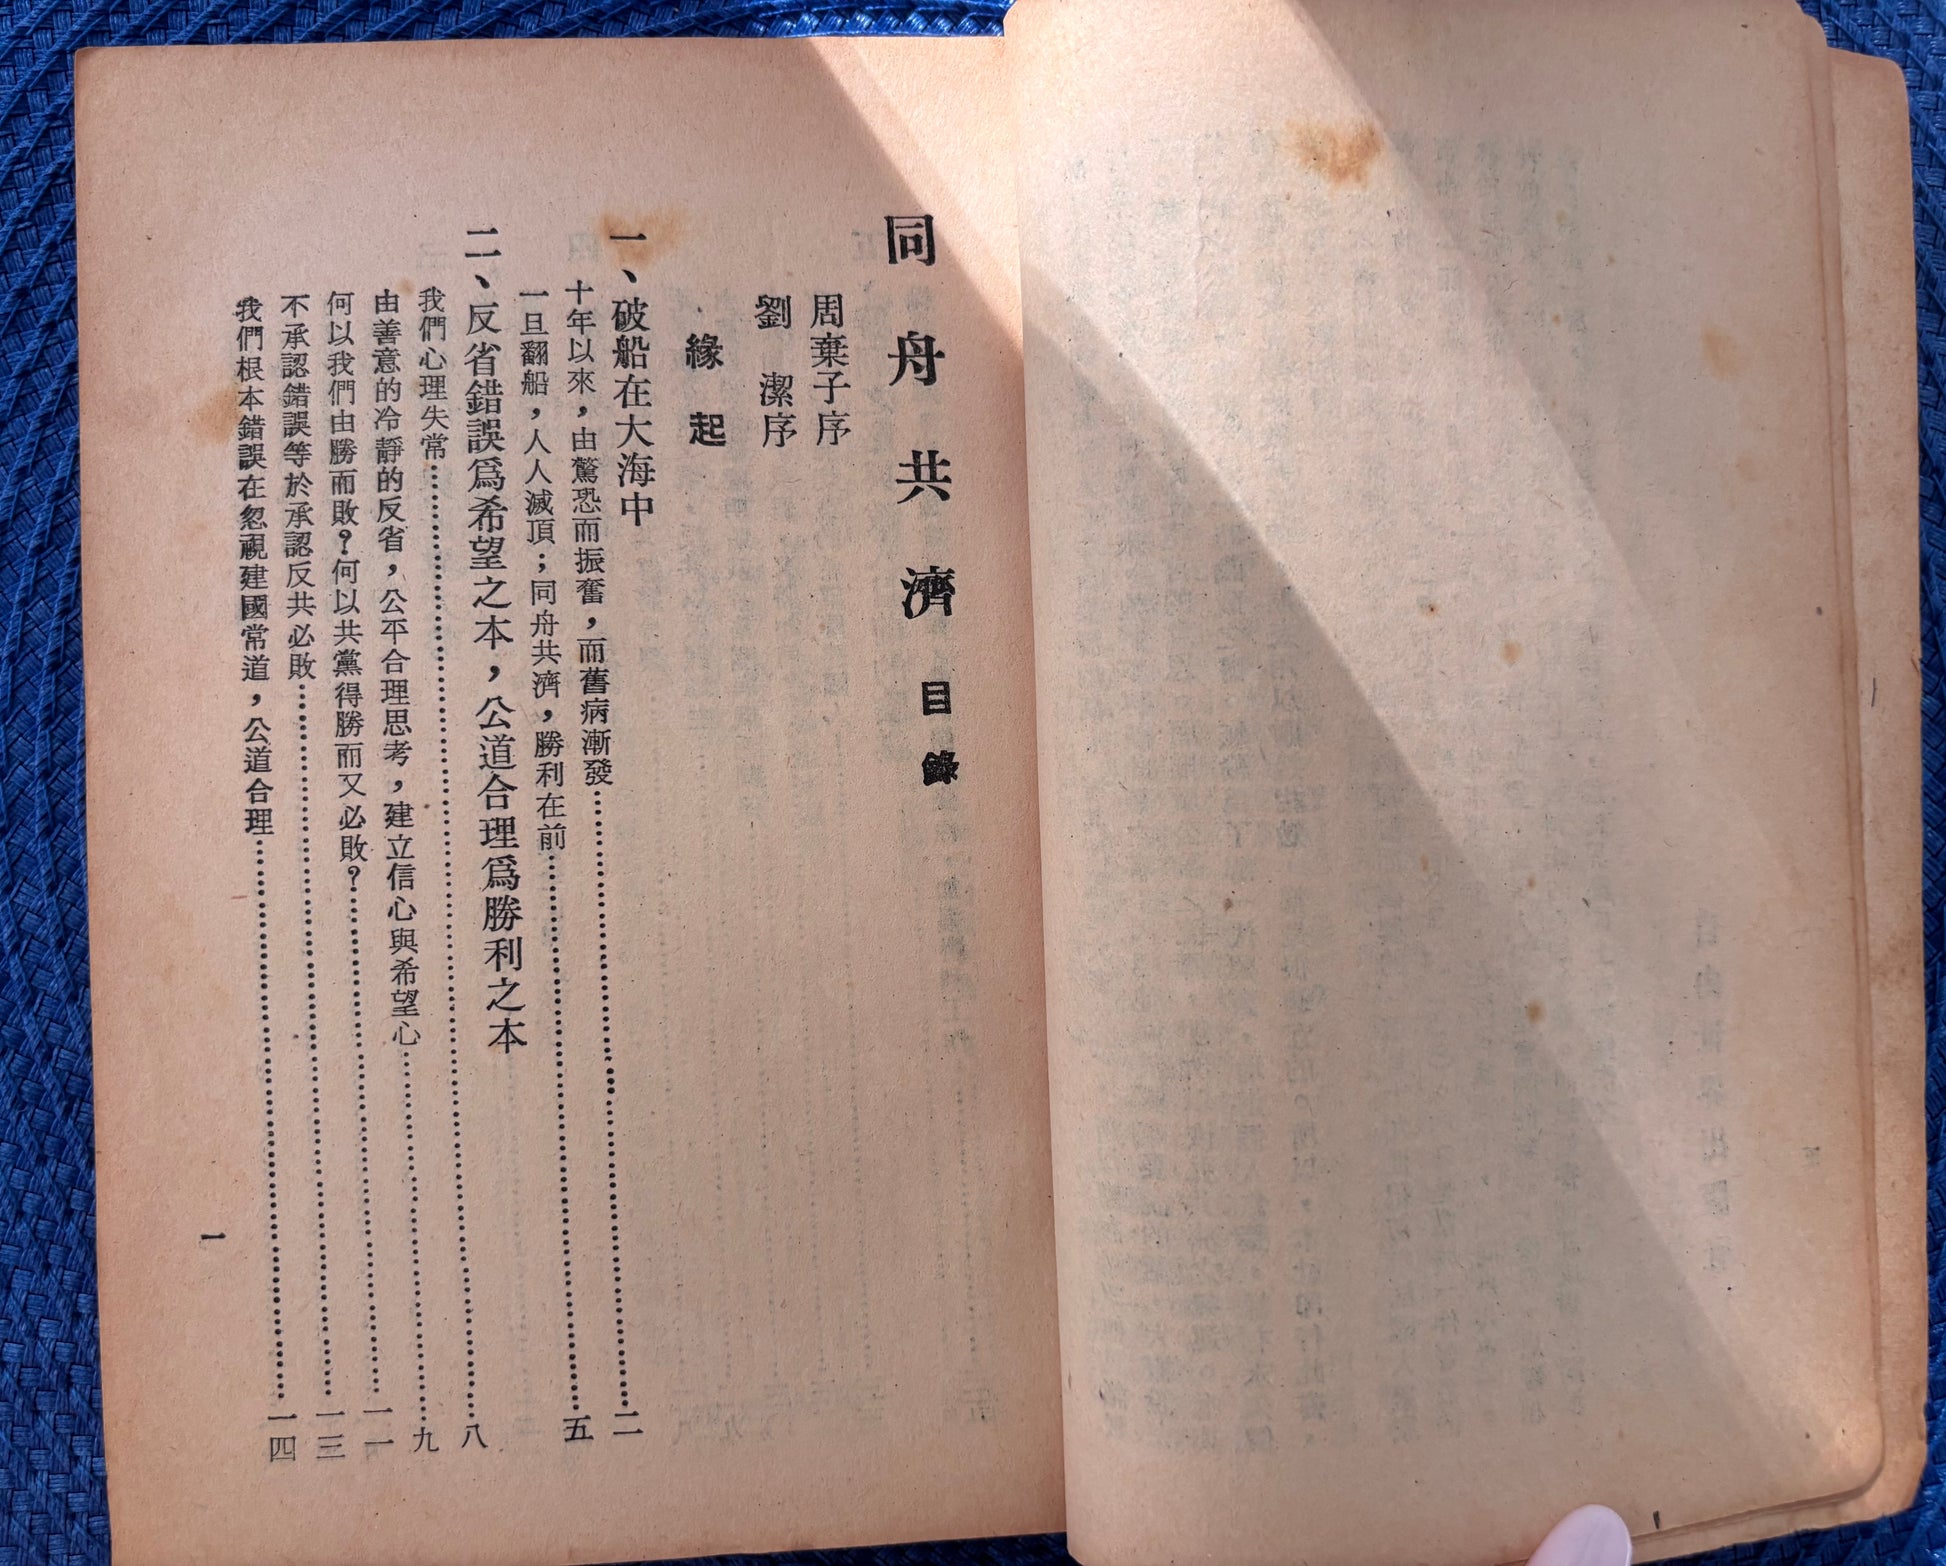 同舟共濟目錄
周棄子序
劉　潔序
緣起
一、破船在大海中
十年以來，由驚恐而振奮，而舊病漸發……二
一旦翻船，人人滅頂；同舟共濟，勝利在前……五
二、反省錯誤爲希望之本，公道合理爲勝利之本
我們心理失常……八
由善意的冷靜的反省，公平合理思考，建立信心與希望心……九
何以我們由勝而敗？何以共黨得勝而又必敗？……一一
不承認錯誤等於承認反共必敗……一三
我們根本錯誤在忽視建國常道，公道合理……一四
一